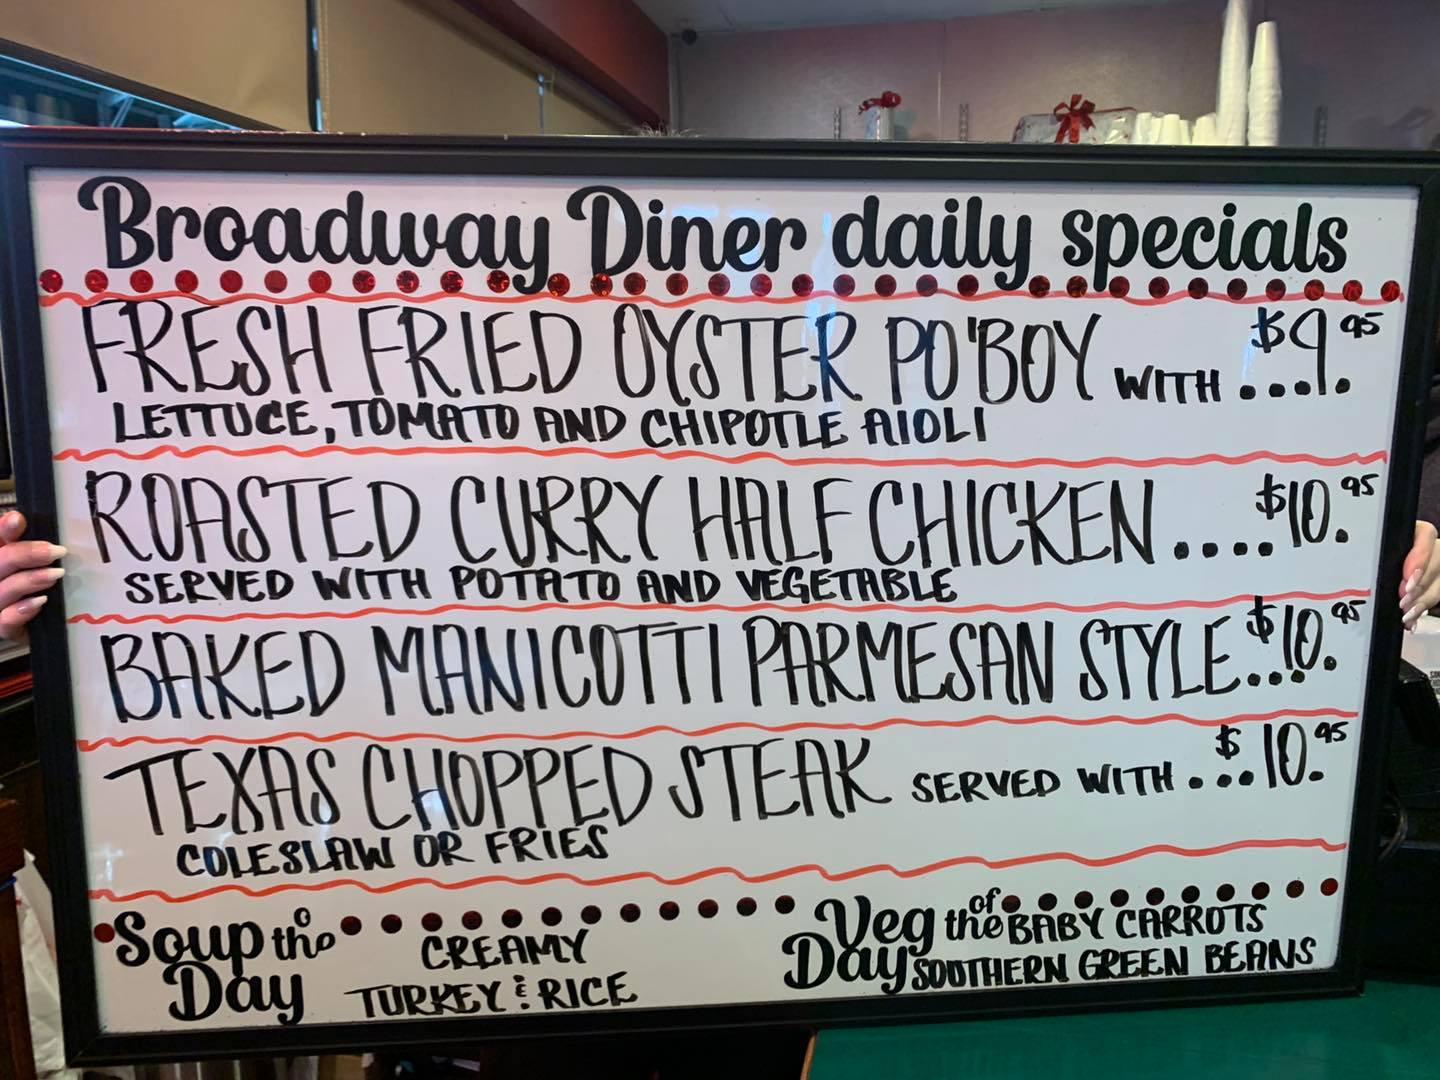 Broadway Diner daily specials
FRESH FRIED OYSTER PO'BOY WITH ....$9.95
LETTUCE, TOMATO AND CHIPOTLE AIOLI
ROASTED CURRY HALF CHICKEN ....$10.95
SERVED WITH POTATO AND VEGETABLE
BAKED MANICOTTI PARMESAN STYLE ...$10.95
TEXAS CHOPPED STEAK SERVED WITH ...$10.95
COLESLAW OR FRIES
Soup o the Day
CREAMY
TURKEY & RICE
Veg of the Day
BABY CARROTS
SOUTHERN GREEN BEANS